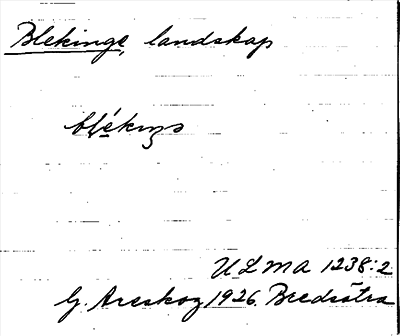 Blekinge, landskap
blékıŋs
ULMA 1238:2
G. Areskog 1926. Bredsätra